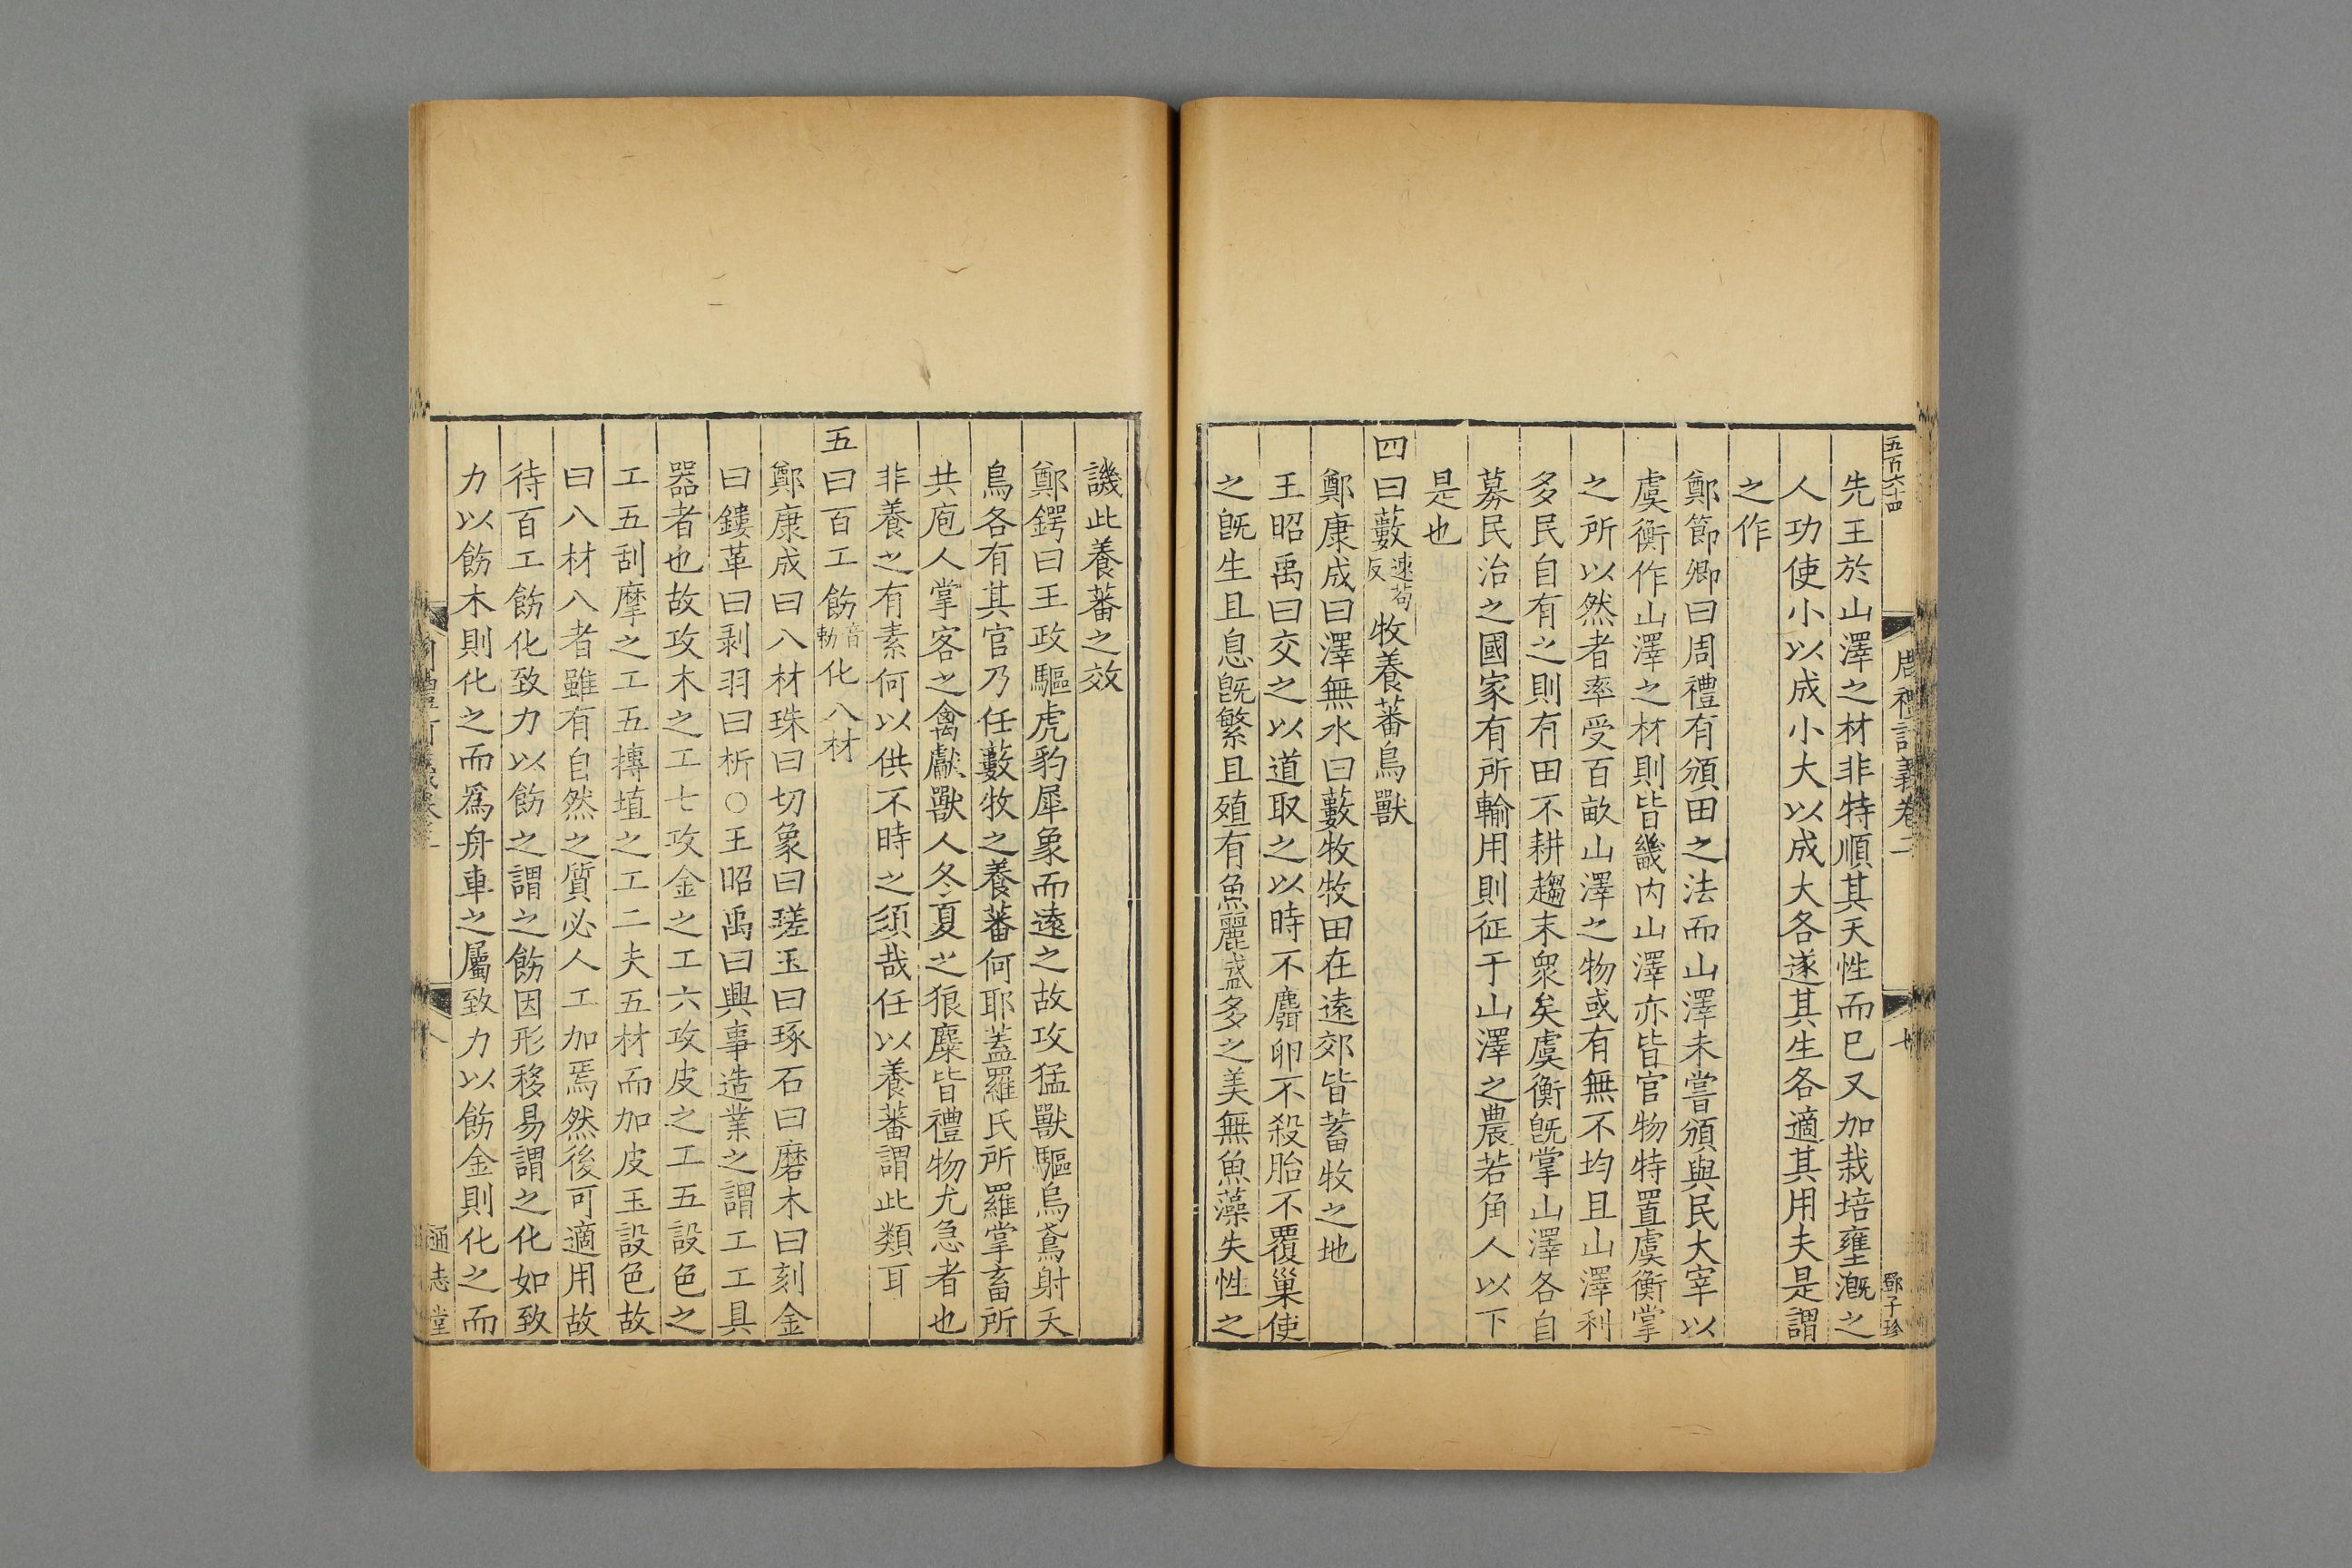 五百六十四
周禮訂義卷二
鄧子珍
先王於山澤之材非特順其天性而已又加栽培壅漑之
人功使小以成小大以成大各遂其生各適其用夫是謂
之作
鄭節卿曰周禮有頒田之法而山澤未嘗頒與民大宰以
虞衡作山澤之材則皆畿内山澤亦皆官物特置虞衡掌
之所以然者率受百畝山澤之物或有無不均且山澤利
多民自有之則有田不耕趨末衆矣虞衡旣掌山澤各自
募民治之國家有所輸用則征于山澤之農若角人以下
是也
四曰藪速苟反牧養蕃鳥獸
鄭康成曰澤無水曰藪牧牧田在遠郊皆蓄牧之地
王昭禹曰交之以道取之以時不麛卵不殺胎不覆巢使
之旣生且息旣繁且殖有魚麗盛多之美無魚藻失性之
譏此養蕃之效
鄭鍔曰王政驅虎豹犀象而遠之故攻猛獸驅烏鳶射夭
鳥各有其官乃任藪牧之養蕃何耶蓋羅氏所羅掌畜所
共庖人掌客之禽獻獸人冬夏之狼麋皆禮物尤急者也
非養之有素何以供不時之須哉任以養蕃謂此類耳
五曰百工飭音勑化八材
鄭康成曰八材珠曰切象曰瑳玉曰琢石曰磨木曰刻金
曰鏤革曰剥羽曰析○王昭禹曰興事造業之謂工工具
器者也故攻木之工七攻金之工六攻皮之工五設色之
工五刮摩之工五摶埴之工二夫五材而加皮玉設色故
曰八材八者雖有自然之質必人工加焉然後可適用故
待百工飭化致力以飭之謂之飭因形移易謂之化如致
力以飭木則化之而爲舟車之屬致力以飭金則化之而
通志堂